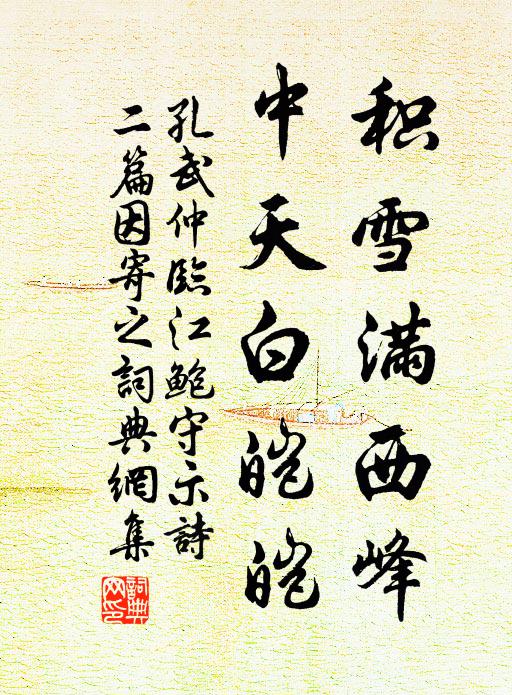 积雪满西峰
中天白皑皑
孔武仲臨江鮑守示詩
二篇因寄之詞典網集
詞典網印